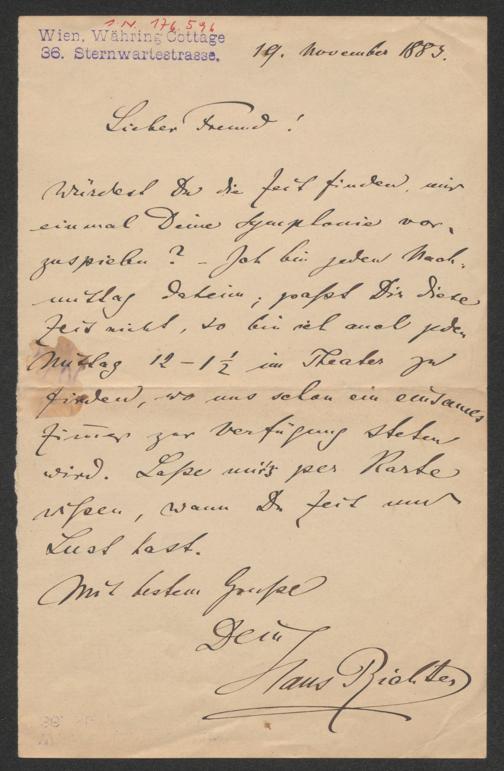 I. N. 176.596
Wien, Währing Cottage
36. Sternwartestrasse.
19. November 1883.
Lieber Freund!
Würdest Du die Zeit finden, mir
einmal Deine Symphonie vor-
zuspielen? – Ich bin jeden Nach-
mittag daheim; paßt Dir diese
Zeit nicht, so bin ich auch jeden
Mittag 12 – 1 ½ im Theater zu
finden, wo uns schon ein einsames
Zimmer zur Verfügung stehen
wird. Laße mich per Karte
wißen, wann Du Zeit und
Lust hast.
Mit bestem Gruße
Dein
Hans Richter